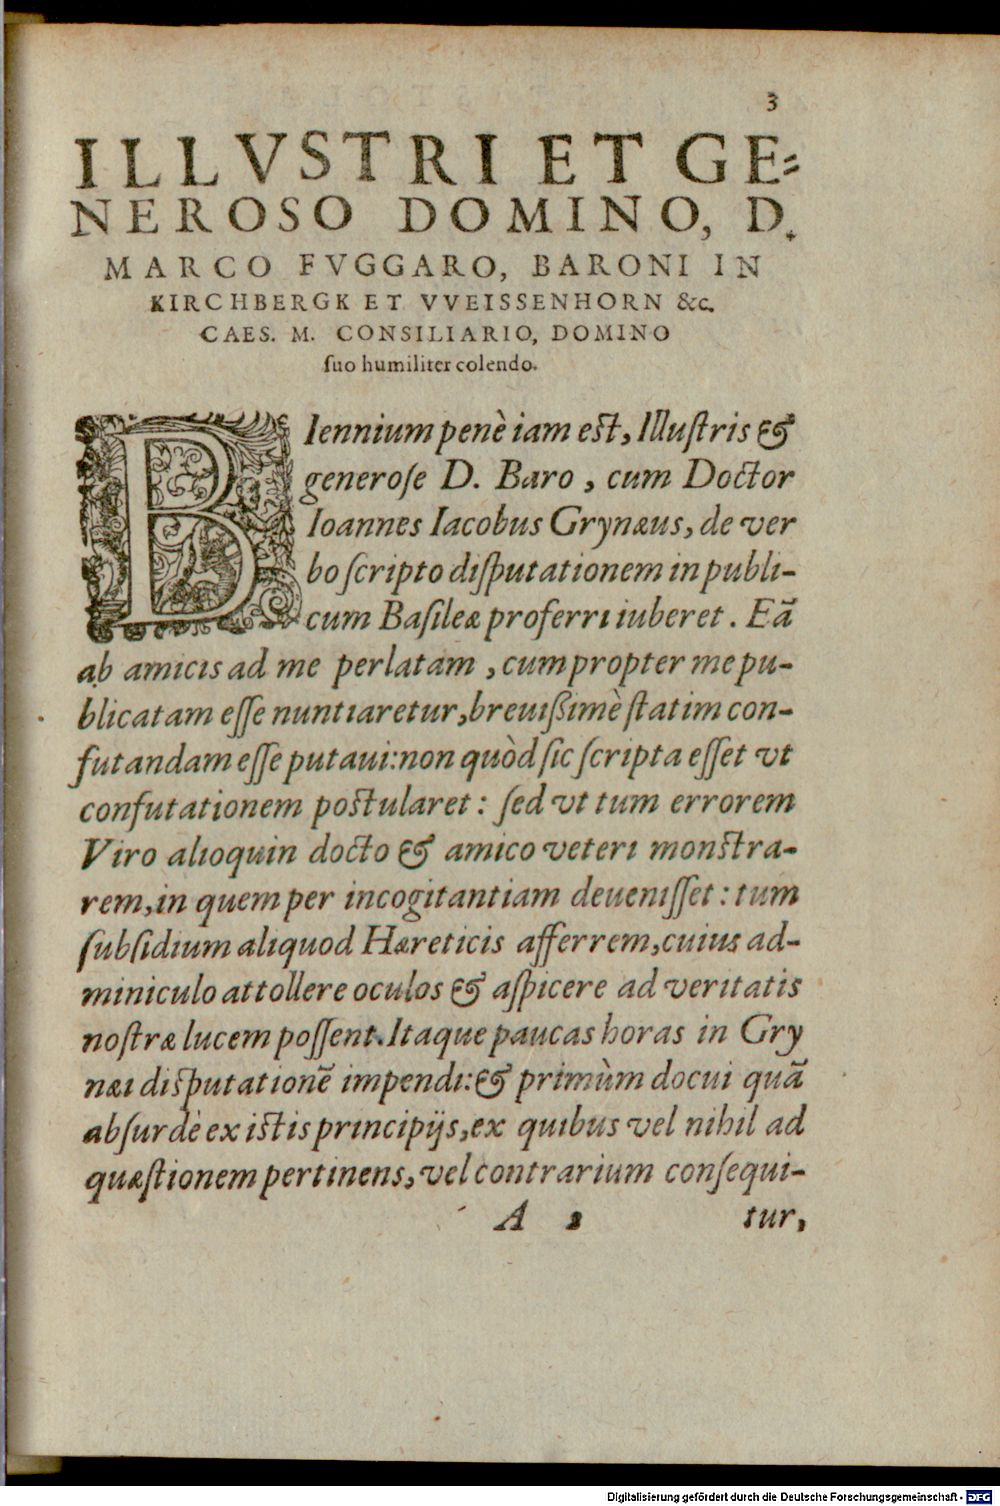 3
ILLVSTRI ET GE=
NEROSO DOMINO, D.
MARCO FVGGARO, BARONI IN
KIRCHBERGK ET VVEISSENHORN &c.
CAES. M. CONSILIARIO, DOMINO
ſuo humiliter colendo.
BIennium penè iam est, Illuſtris &
generoſe D. Baro, cum Doctor
Ioannes Iacobus Grynæus, de ver
bo ſcripto diſputationem in publi-
cum Baſileæ proferri iuberet. Eã
ab amicis ad me perlatam, cum propter me pu-
blicatam eſſe nuntiaretur, breuißimè ſtatim con-
futandam eſſe putaui: non quòd ſic ſcripta eſſet vt
confutationem postularet: ſed vt tum errorem
Viro alioquin docto & amico veteri monstra-
rem, in quem per incogitantiam deueniſſet: tum
ſubſidium aliquod Hæreticis afferrem, cuius ad-
miniculo attollere oculos & aſpicere ad veritatis
noſtræ lucem poſſent. Itaque paucas horas in Gry
næi diſputationẽ impendi: & primùm docui quã
abſurdè ex istis principijs, ex quibus vel nihil ad
quæſtionem pertinens, vel contrarium conſequi-
A 2 tur,
Digitalisierung gefördert durch die Deutsche Forschungsgemeinschaft - DFG